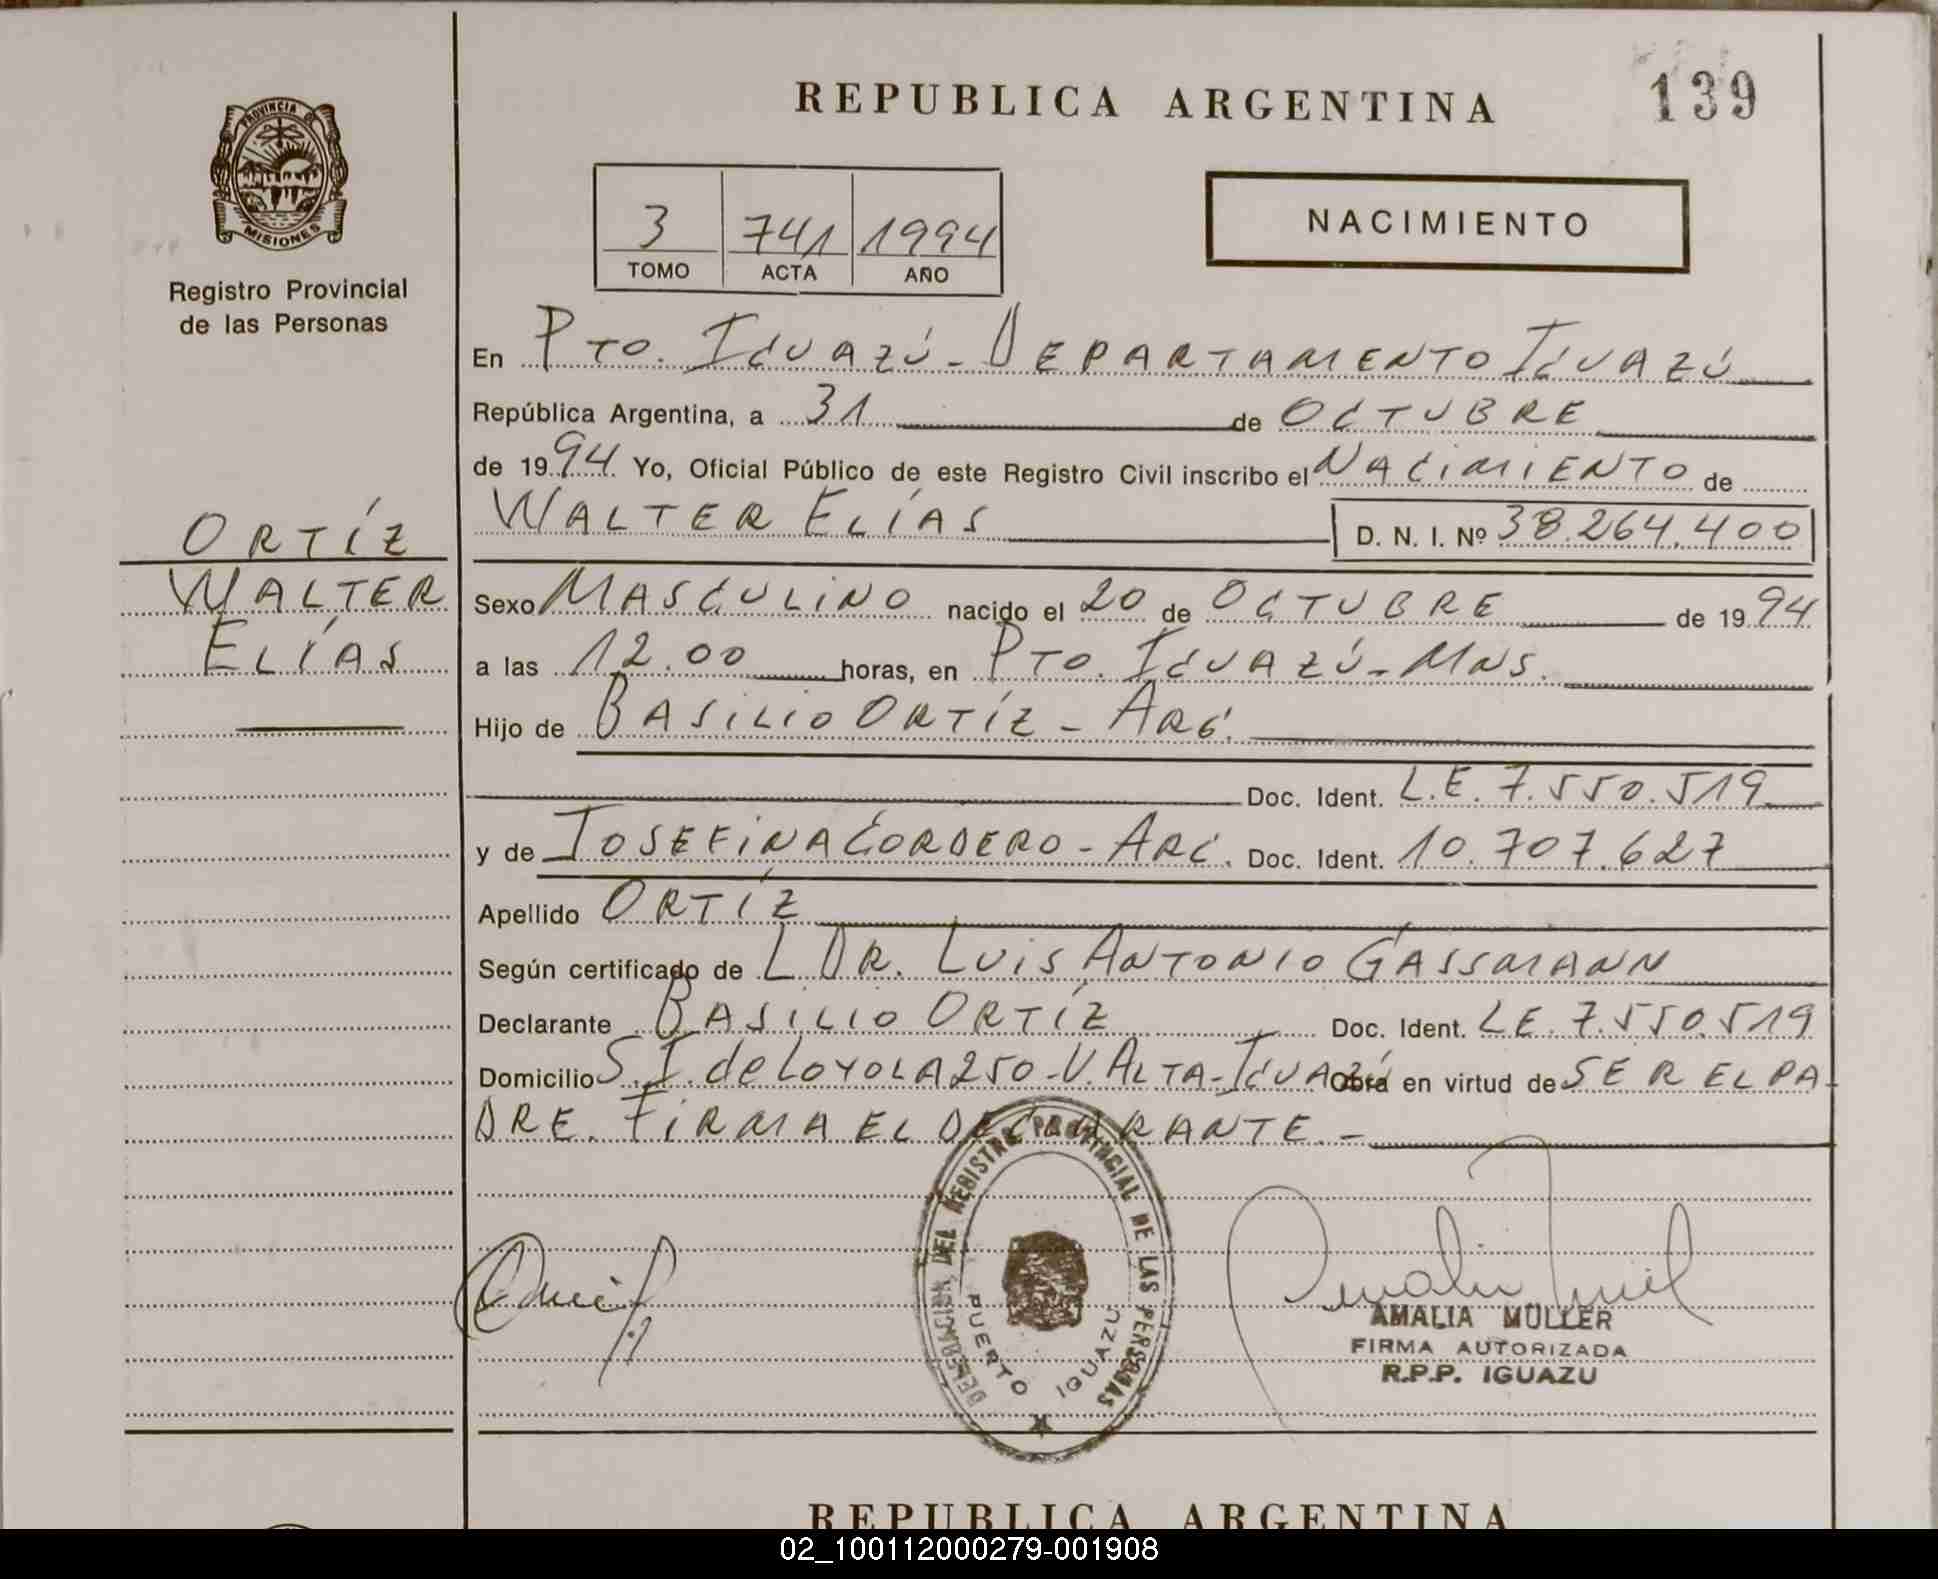 REPUBLICA ARGENTINA
139
PROVINCIA DE
MISIONES
Registro Provincial
de las Personas
3 741 1994
TOMO ACTA AÑO
NACIMIENTO
En PTO. IGUAZÚ - DEPARTAMENTO IGUAZÚ
República Argentina, a 31 de OCTUBRE
de 1994 Yo, Oficial Público de este Registro Civil inscribo el NACIMIENTO de
WALTER ELÍAS D. N. I. Nº 38.264.400
ORTÍZ
WALTER
ELÍAS
Sexo MASCULINO nacido el 20 de OCTUBRE de 1994
a las 12.00 horas, en PTO. IGUAZÚ - MNS.
Hijo de BASILIO ORTÍZ - ARG.
Doc. Ident. L.E. 7.550.519
y de JOSEFINA CORDERO - ARG. Doc. Ident. 10.707.627
Apellido ORTÍZ
Según certificado de L DR. LUIS ANTONIO GASSMANN
Declarante BASILIO ORTÍZ Doc. Ident. L.E. 7.550.519
Domicilio S. I. de LOYOLA 250 - V. ALTA - IGUAZÚ Obra en virtud de SER EL PA
DRE. FIRMA EL DECLARANTE. -
DELEGACION DEL REGISTRO PROVINCIAL DE LAS PERSONAS
PUERTO IGUAZU
AMALIA MÜLLER
FIRMA AUTORIZADA
R.P.P. IGUAZU
REPUBLICA ARGENTINA
02_100112000279-001908